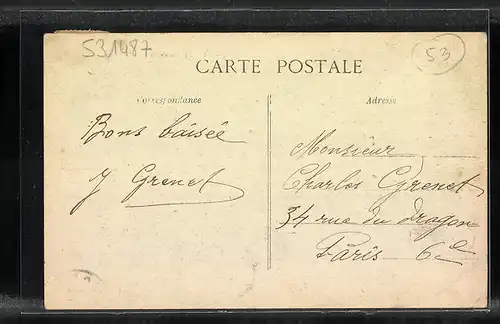 531487
53
CARTE POSTALE
Correspondance
Adresse
Bons baisée
J Grenet
Monsieur
Charles Grenet
34 rue du dragon
Paris 6e